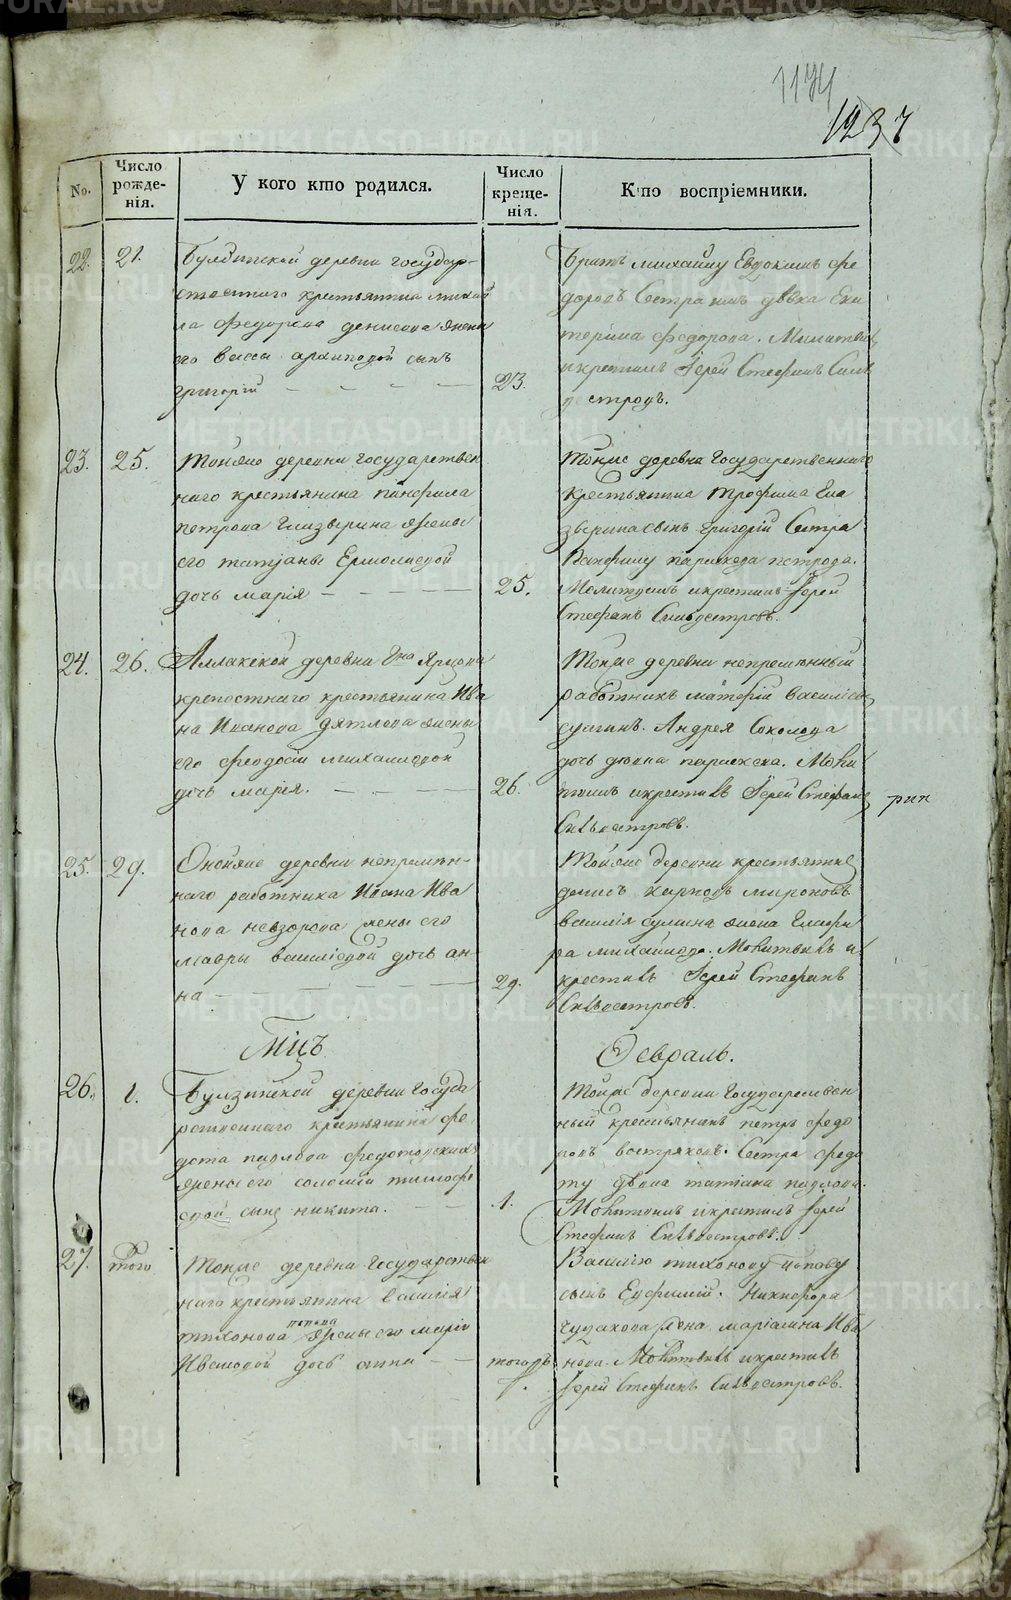 1174
1237
No.
Число рожде- нія.
У кого кто родился.
Число креще- нія.
Кто воспріемники.
22.
21.
Булзинской деревни государ-
ственного крестьянина михаи
ла федорова денисова жены
его вассы архиповой сынъ
григорій
23.
Братъ михаилу Евдокимъ фе
доровъ Сестра имъ дѣвка Ека
терина федорова. Молитвил
икрестилъ Іерей Стефанъ Силь
вестровъ.
23.
25.
Тойже деревни государствен
наго крестьянина панфила
петрова Елизверина жены
его татіаны Ермолаевой
дочь марія
25.
Тойже деревни Государственнаго
крестьянина трофима Ели
зверина сынъ григорій Сестра
Панфилу парасковя петрова.
Молитвилъ икрестилъ Іерей
Стефанъ Сильвестровъ.
24.
26.
Аллакской деревни Гна Ярцова
крепостнаго крестьянина Ива
на Иванова дятлова жены
его феодосіи михайловой
дочь марія.
26.
Тойже деревни непремѣнный
работникъ матфій василіевъ
сулинъ. Андрея Соколова
дочь девка парасковя. Моли
твилъ икрестилъ Іерей Стефанъ
Сильвестровъ.
25.
29.
Онойже деревни непремѣн-
наго работника Ивана Ива
нова невзорова жены его
мавры василіевой дочь ан-
на
29.
Тойже деревни крестьянинъ
денисъ карповъ мироновъ
василія сулина жена Глафи
ра михайлова. Молитвилъ и
крестилъ Іерей Стефанъ
Сильвестровъ.
Мцъ
Февраль.
26.
1.
Булзинской деревни Госуда
рственнаго крестьянина фе
дота павлова федотовскихъ
жены его соломіи тимофе
евой сынъ никита.
1.
Тойже деревни Государствен
ный крестьянинъ петръ федо
ровъ востряковъ. Сестра федо
ту дѣвка татіана павлова.
Молитвилъ икрестилъ Іерей
Стефанъ Сильвестровъ.
27.
того
Тойже деревни Государствен
наго крестьянина василія
попова
тихонова жены его маріи
Ивановой дочь анна
тогожъ
1.
Василію тихонову попову
сынъ Евфимій. Никифора
чудакова жена маріамна Ива
нова. Молитвилъ икрестилъ
Іерей Стефанъ Сильвестровъ.
METRIKI.GASO-URAL.RU